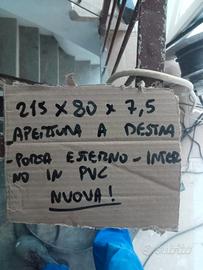 215 x 80 x 7,5
APERTURA A DESTRA
-PORTA ESTERNO-INTER
NO IN PVC
NUOVA!
subito